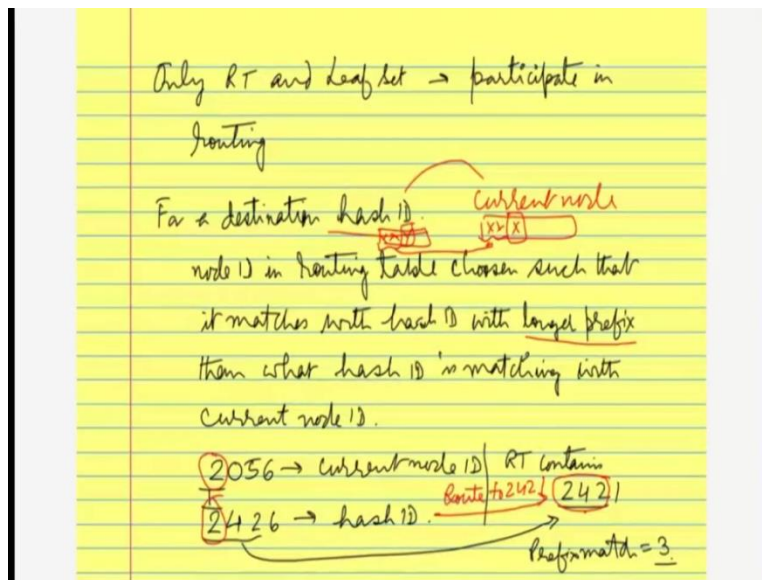 Only RT and Leaf Set → participate in
routing
For a destination hash ID.
current node
XX Y
XX X
node ID in routing table chosen such that
it matches with hash ID with longer prefix
than what hash ID is matching with
current node ID.
2056 → current node ID | RT contains
2426 → hash ID. Route to 2421 2421
Prefix match = 3